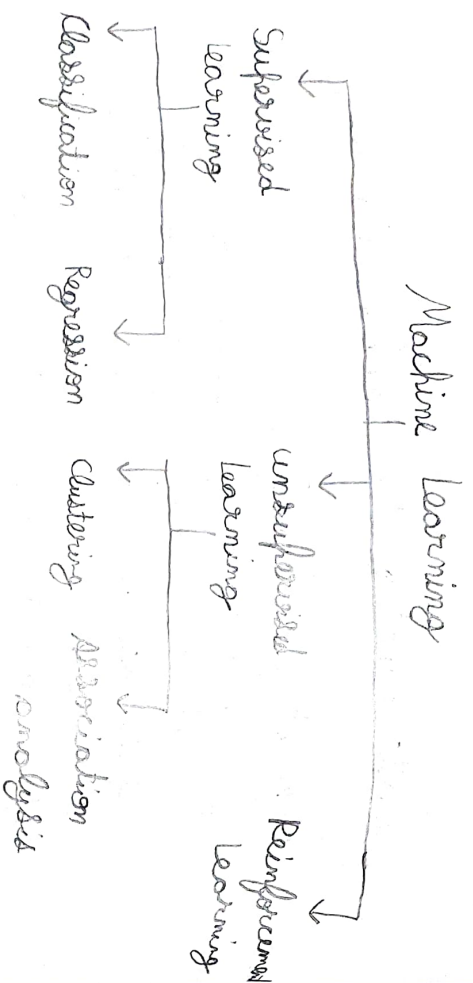 Machine Learning
Supervised
Learning
Unsupervised
Learning
Reinforcement
Learning
Classification
Regression
Clustering
Association
analysis